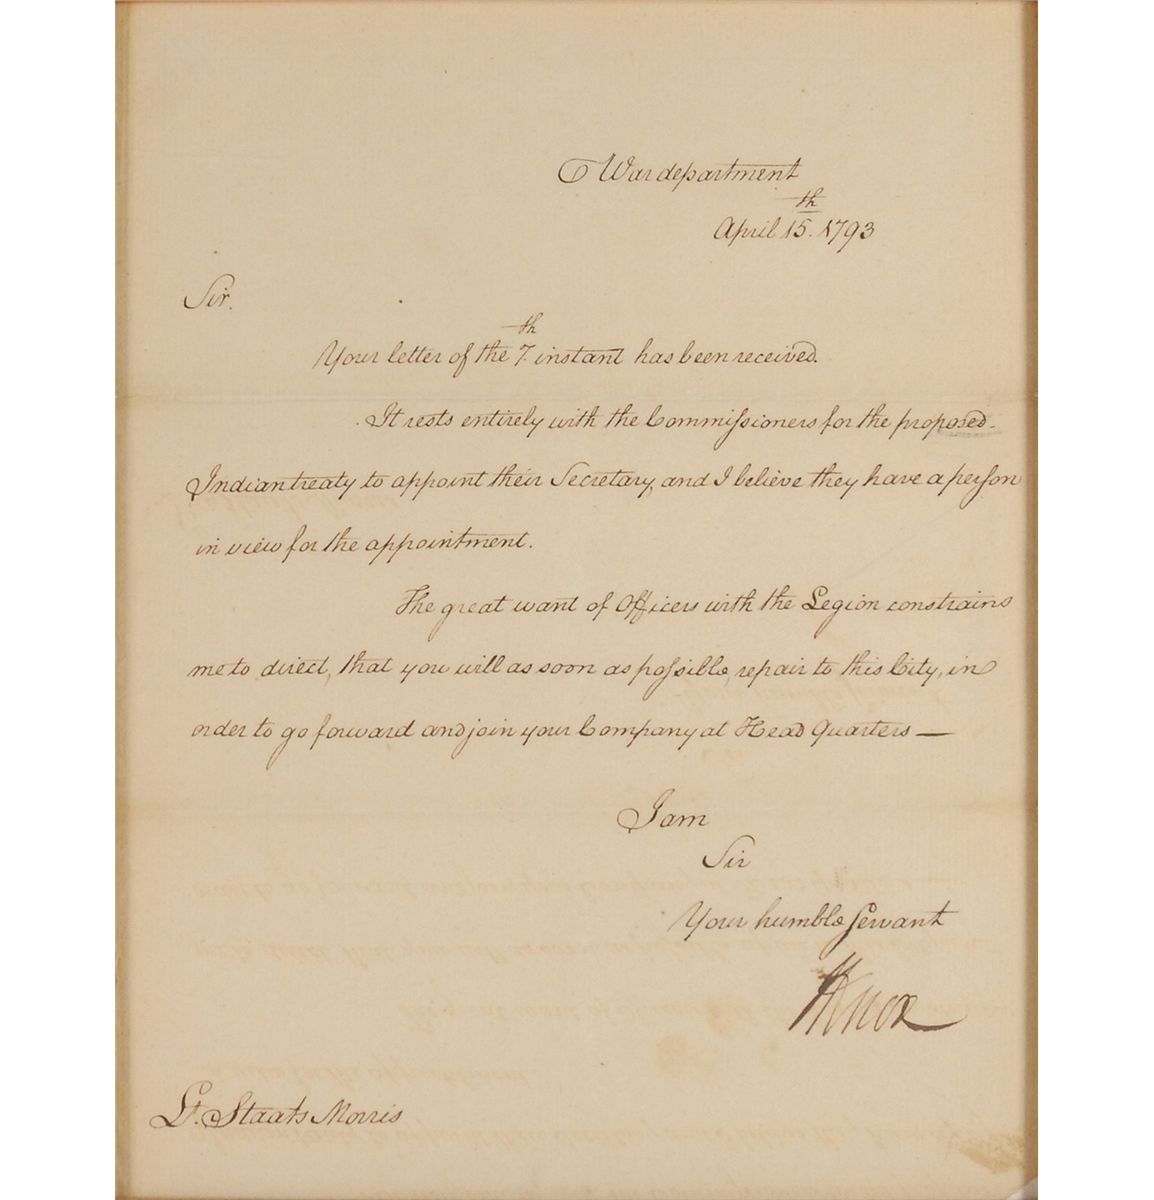 War department
April 15.th 1793
Sir.
Your letter of the 7th instant has been received.
It rests entirely with the Commissioners for the proposed
Indian treaty to appoint their Secretary, and I believe they have a person
in view for the appointment.
The great want of Officers with the Legion constrains
me to direct, that you will as soon as possible, repair to this City, in
order to go forward and join your Company at Head Quarters —
I am
Sir
Your humble Servant
HKnox
Lt. Staats Morris